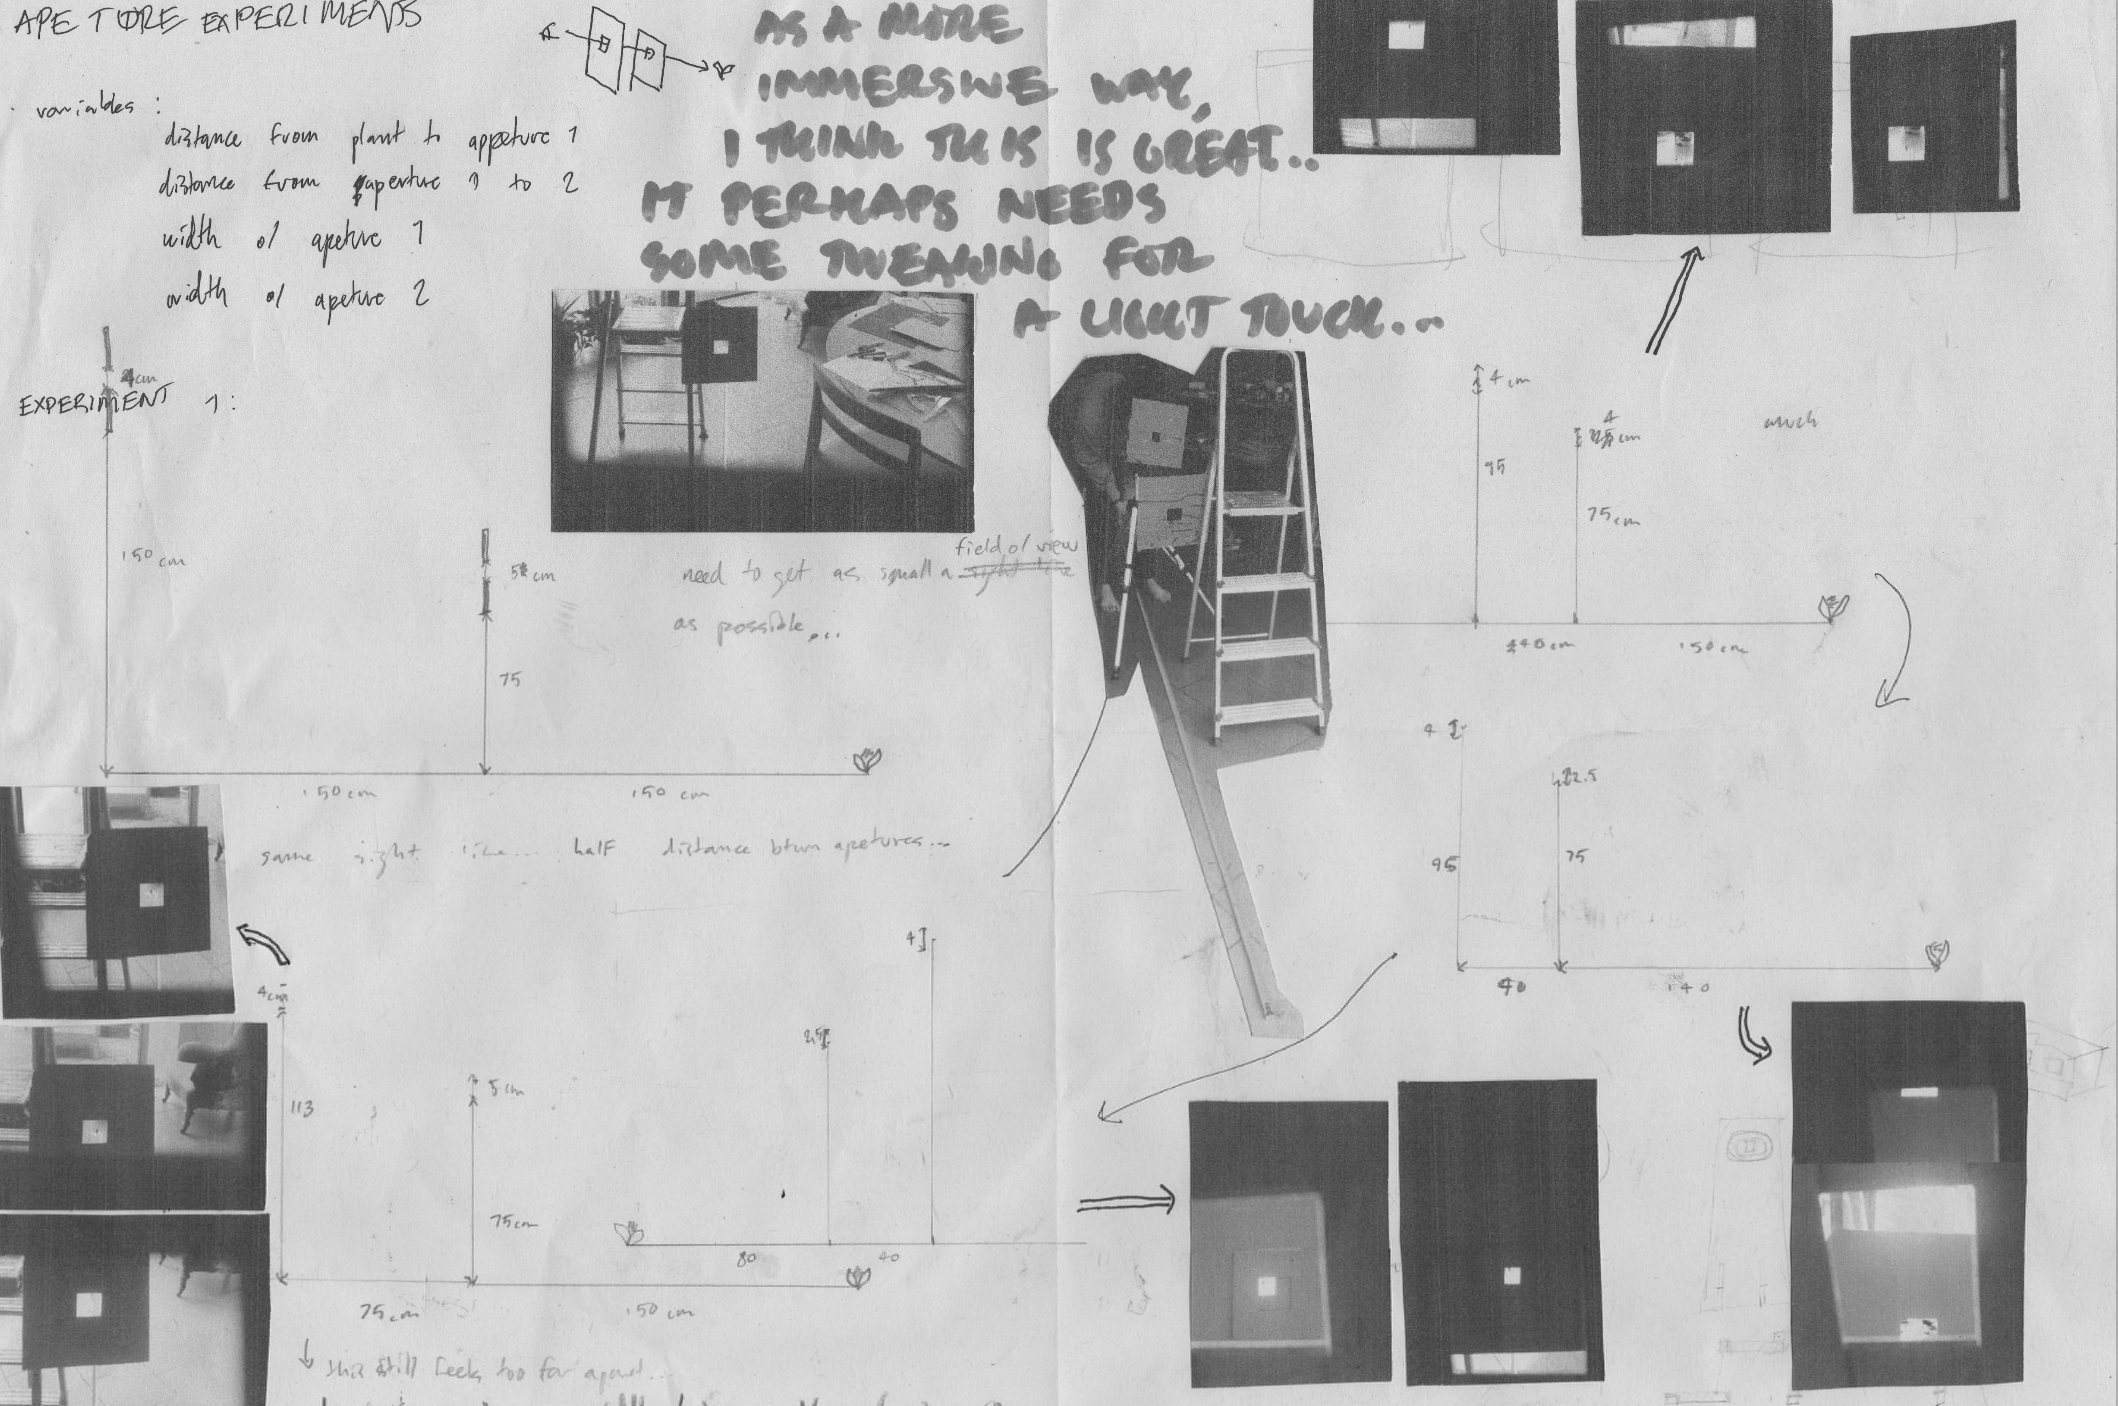 APETURE EXPERIMENTS
variables :
distance from plant to appeture 1
distance from aperture 1 to 2
width of apeture 1
width of apeture 2
AS A MORE
IMMERSIVE WAY,
I THINK THIS IS GREAT..
IT PERHAPS NEEDS
SOME TWEAKING FOR
A LIGHT TOUCH...
4cm
EXPERIMENT 1:
150 cm
5 cm
75
150 cm
150 cm
need to get as small a field of view
as possible...
same sight line... half distance btwn apetures...
4cm
113
5cm
75cm
75cm
150 cm
4
2.5
80
40
this still feels too far apart...
4cm
95
4
cm
75cm
much
40cm
150cm
4
2.5
95
75
40
140